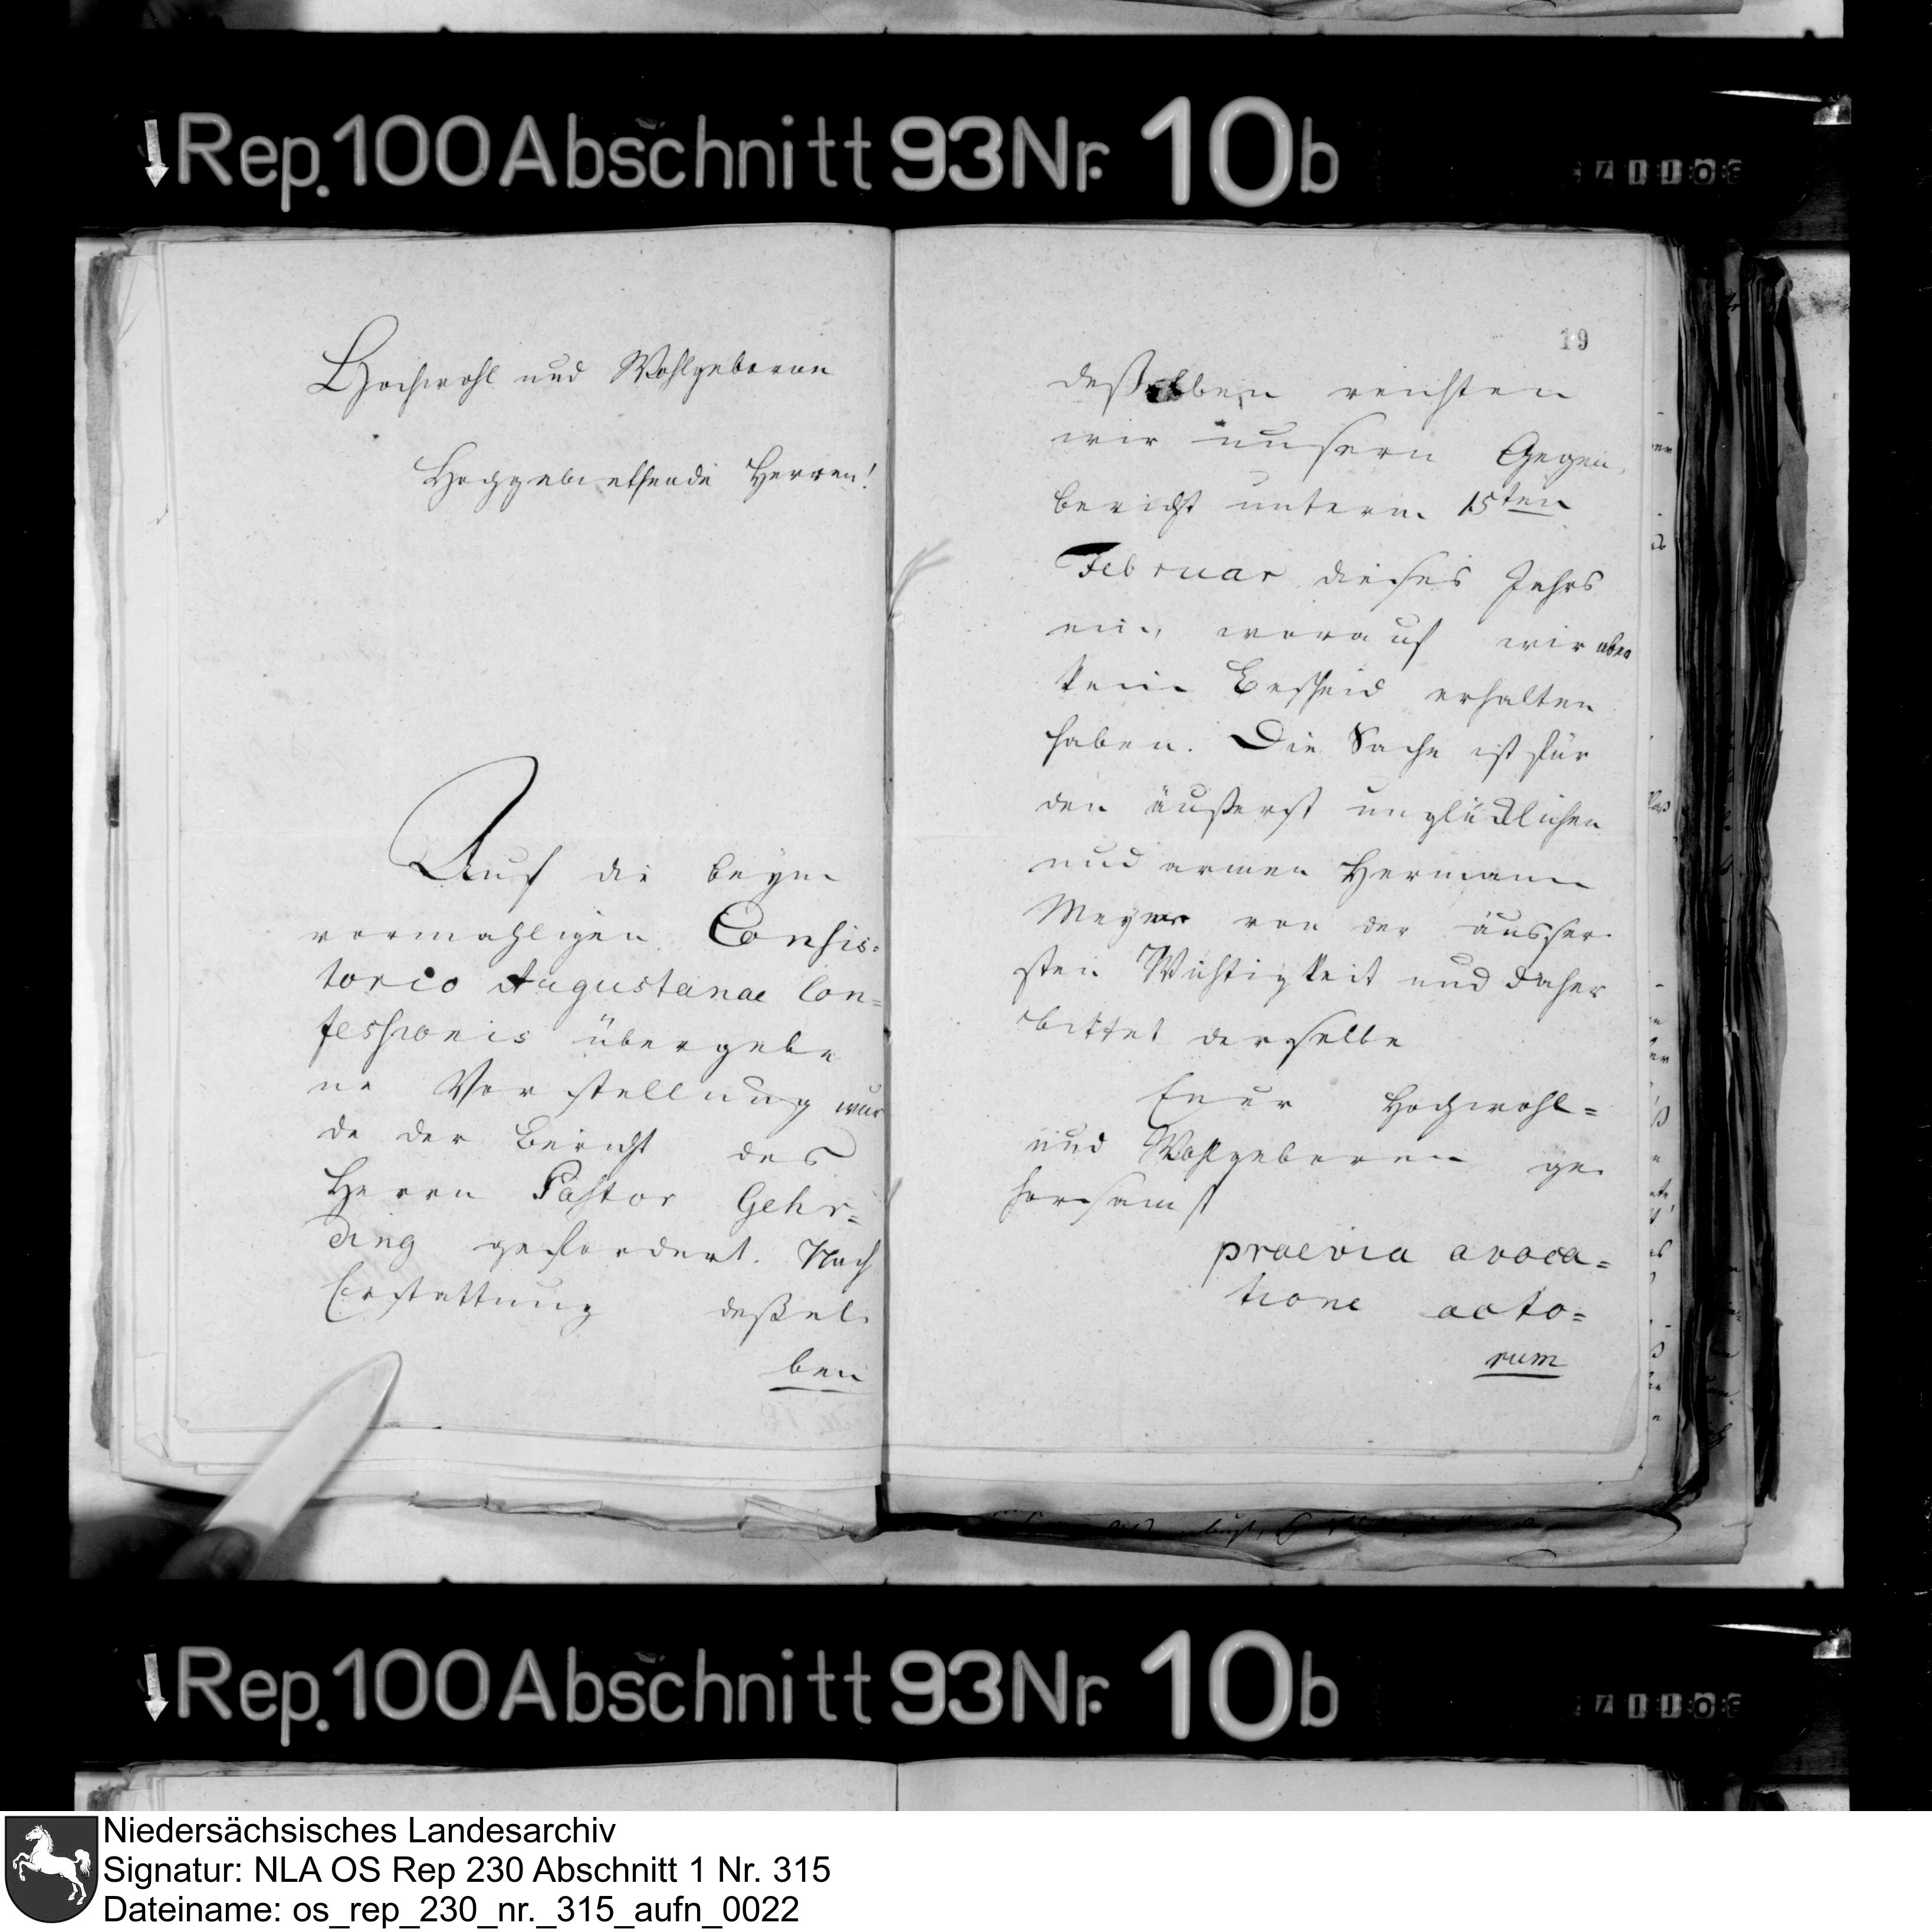 Rep. 100 Abschnitt 93 Nr. 10b
Hochwohl und Wohlgeborne
Hochgebiethende Herren!
Auf die beym
vormahligen Consis=
torio Augustanae Con=
fessionis übergebe
ne Vorstellung wur
de der Bericht des
Herrn Pastor Gehr=
ding gefordert. Nach
Erstattung deßel
ben
19
deßelben reichten
wir unsern Gegen
bericht unterm 15ten
Februar dieses Jahrs
ein, worauf wir aber
kein Bescheid erhalten
haben. Die Sache ist für
den äußerst unglücklichen
und armen Hermann
Meyer von der äusser
sten Wichtigkeit und daher
bittet derselbe
Euer Hochwohl=
und Wohlgeboren ge
horsamst
praevia avoca=
tione acto=
rum
Rep. 100 Abschnitt 93 Nr. 10b
Niedersächsisches Landesarchiv
Signatur: NLA OS Rep 230 Abschnitt 1 Nr. 315
Dateiname: os_rep_230_nr._315_aufn_0022